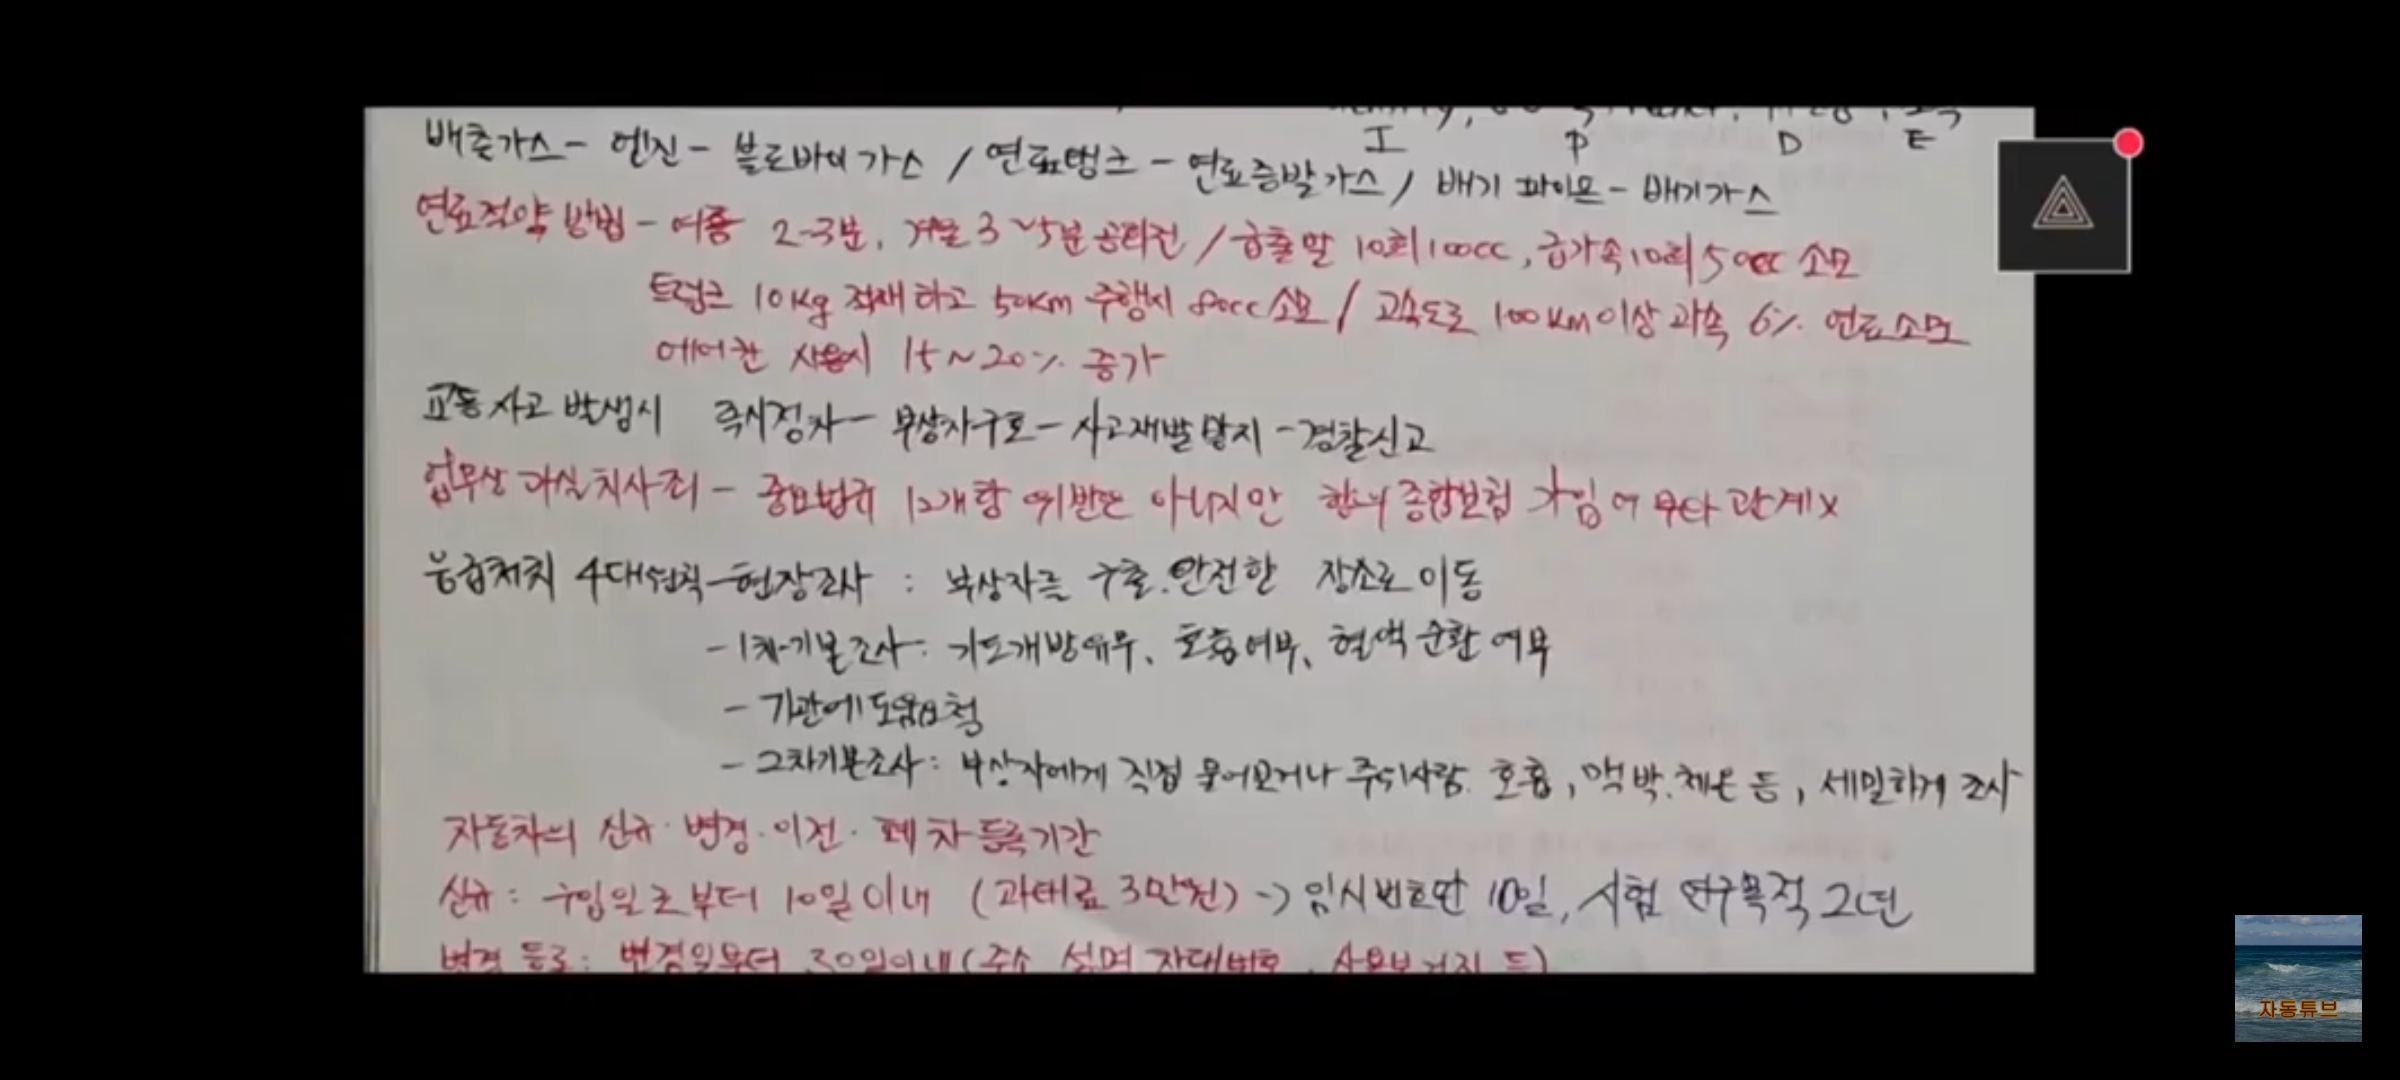 I P D E
배출가스 - 엔진 - 블로바이가스 / 연료탱크 - 연료증발가스 / 배기 파이프 - 배기가스
연료절약 방법 - 여름 2-3분, 겨울 3~5분 공회전 / 급출발 10회 100cc, 급가속 10회 50cc 소모
트렁크 10Kg 적재하고 50km 주행시 80cc 소모 / 고속도로 100Km이상 과속 6% 연료소모
에어컨 사용시 15~20% 증가
교통사고 발생시 즉시정차 - 부상자구호 - 사고재발방지 - 경찰신고
업무상 과실치사죄 - 중요법규 12개항 위반뿐 아니지만 합의 종합보험 가입여부와 관계x
응급처치 4대원칙 - 현장조사 : 부상자를 구출. 안전한 장소로 이동
- 1차기본조사 : 기도개방유무, 호흡여부, 혈액 순환 여부
- 기관에 도움요청
- 2차기본조사 : 부상자에게 직접 물어보거나 주위사람. 호흡, 맥박. 체온 등, 세밀하게 조사
자동차의 신규·변경·이전·폐차 등록기간
신규 : 구입일로부터 10일이내 (과태료 3만원) -> 임시번호판 10일, 시험 연구목적 2년
변경 등록 : 변경일부터 30일이내 (주소 성명 차대번호, 사용본거지 등)
자동튜브